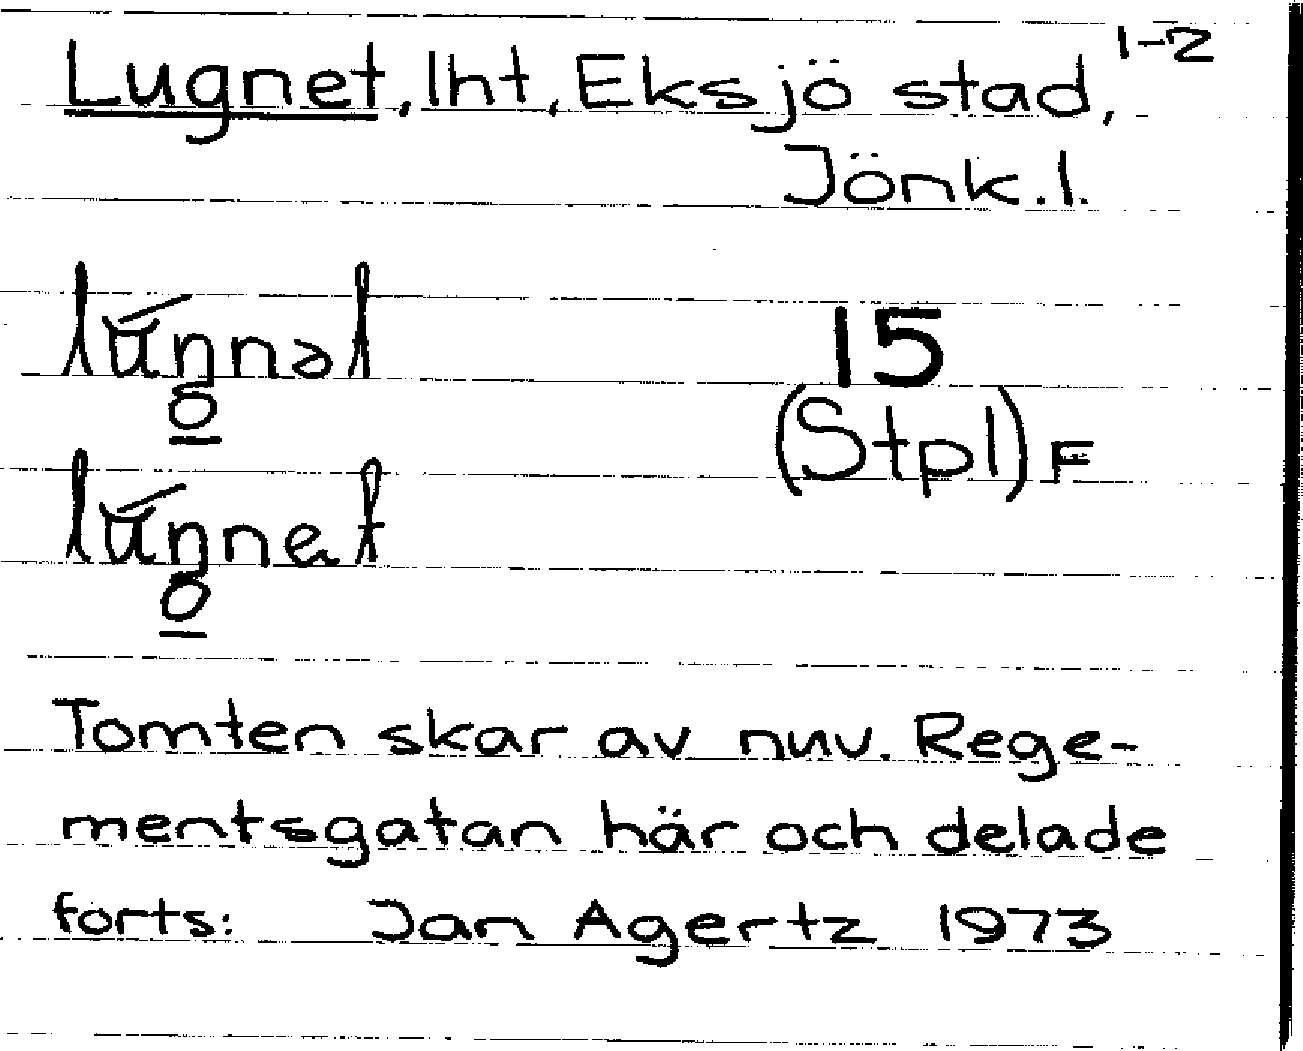 Lugnet, lht, Eksjö stad, 1-2
Jönk.l.
15
(Stpl) F
Tomten skar av nuv. Rege-
mentsgatan här och delade
forts: Jan Agertz 1973